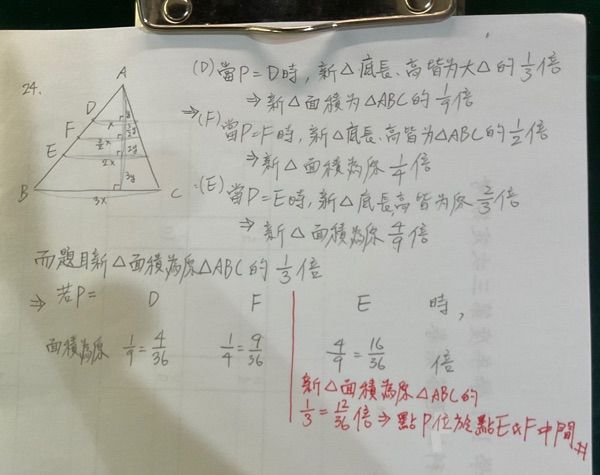 24.
A
D
F
E
B
C
x
y
3/2 x
3/2 y
2x
2y
3x
3y
(D) 當P=D時, 新△底長、高皆為大△的 1/3 倍
⇒新△面積為△ABC的 1/9 倍
(F) 當P=F時, 新△底長、高皆為△ABC的 1/2 倍
⇒新△面積為原 1/4 倍
(E) 當P=E時, 新△底長、高皆為原 2/3 倍
⇒ 新△面積為原 4/9 倍
而題目新△面積為原△ABC的 1/3 倍
⇒ 若P= D F E 時,
面積為原 1/9 = 4/36 1/4 = 9/36 4/9 = 16/36 倍
新△面積為原△ABC的
1/3 = 12/36 倍 ⇒ 點P位於點E &F中間 #